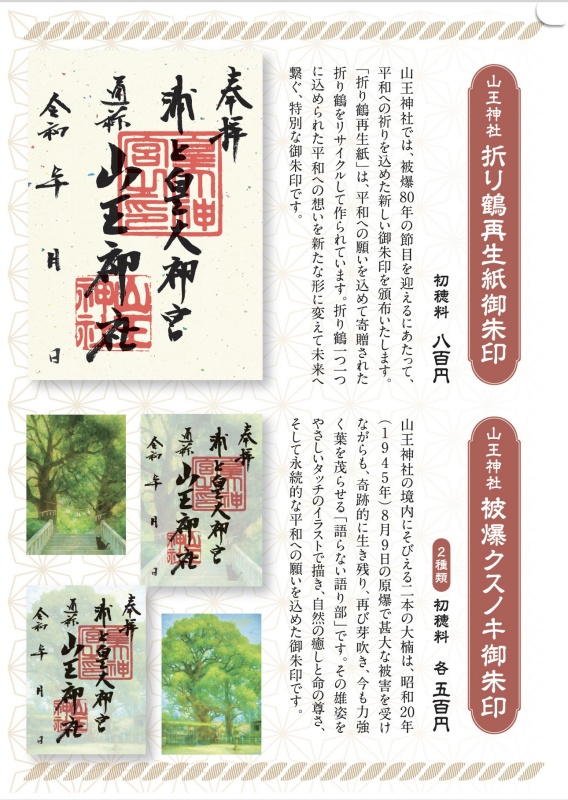 山王神社 折り鶴再生紙御朱印
初穂料 八百円
山王神社では、被爆80年の節目を迎えるにあたって、
平和への祈りを込めた新しい御朱印を頒布いたします。
「折り鶴再生紙」は、平和への願いを込めて寄贈された
折り鶴をリサイクルして作られています。折り鶴一つ一つ
に込められた平和への想いを新たな形に変えて未来へ
繋ぐ、特別な御朱印です。
奉拝
浦上皇大神宮
通称 山王神社
令和 年 月 日
山王神社 被爆クスノキ御朱印
2種類 初穂料 各 五百円
山王神社の境内にそびえる二本の大楠は、昭和20年
(1945年)8月9日の原爆で甚大な被害を受け
ながらも、奇跡的に生き残り、再び芽吹き、今も力強
く葉を茂らせる「語らない語り部」です。その雄姿を
やさしいタッチのイラストで描き、自然の癒しと命の尊さ、
そして永続的な平和への願いを込めた御朱印です。
奉拝
浦上皇大神宮
通称 山王神社
令和 年 月 日
奉拝
浦上皇大神宮
通称 山王神社
令和 年 月 日